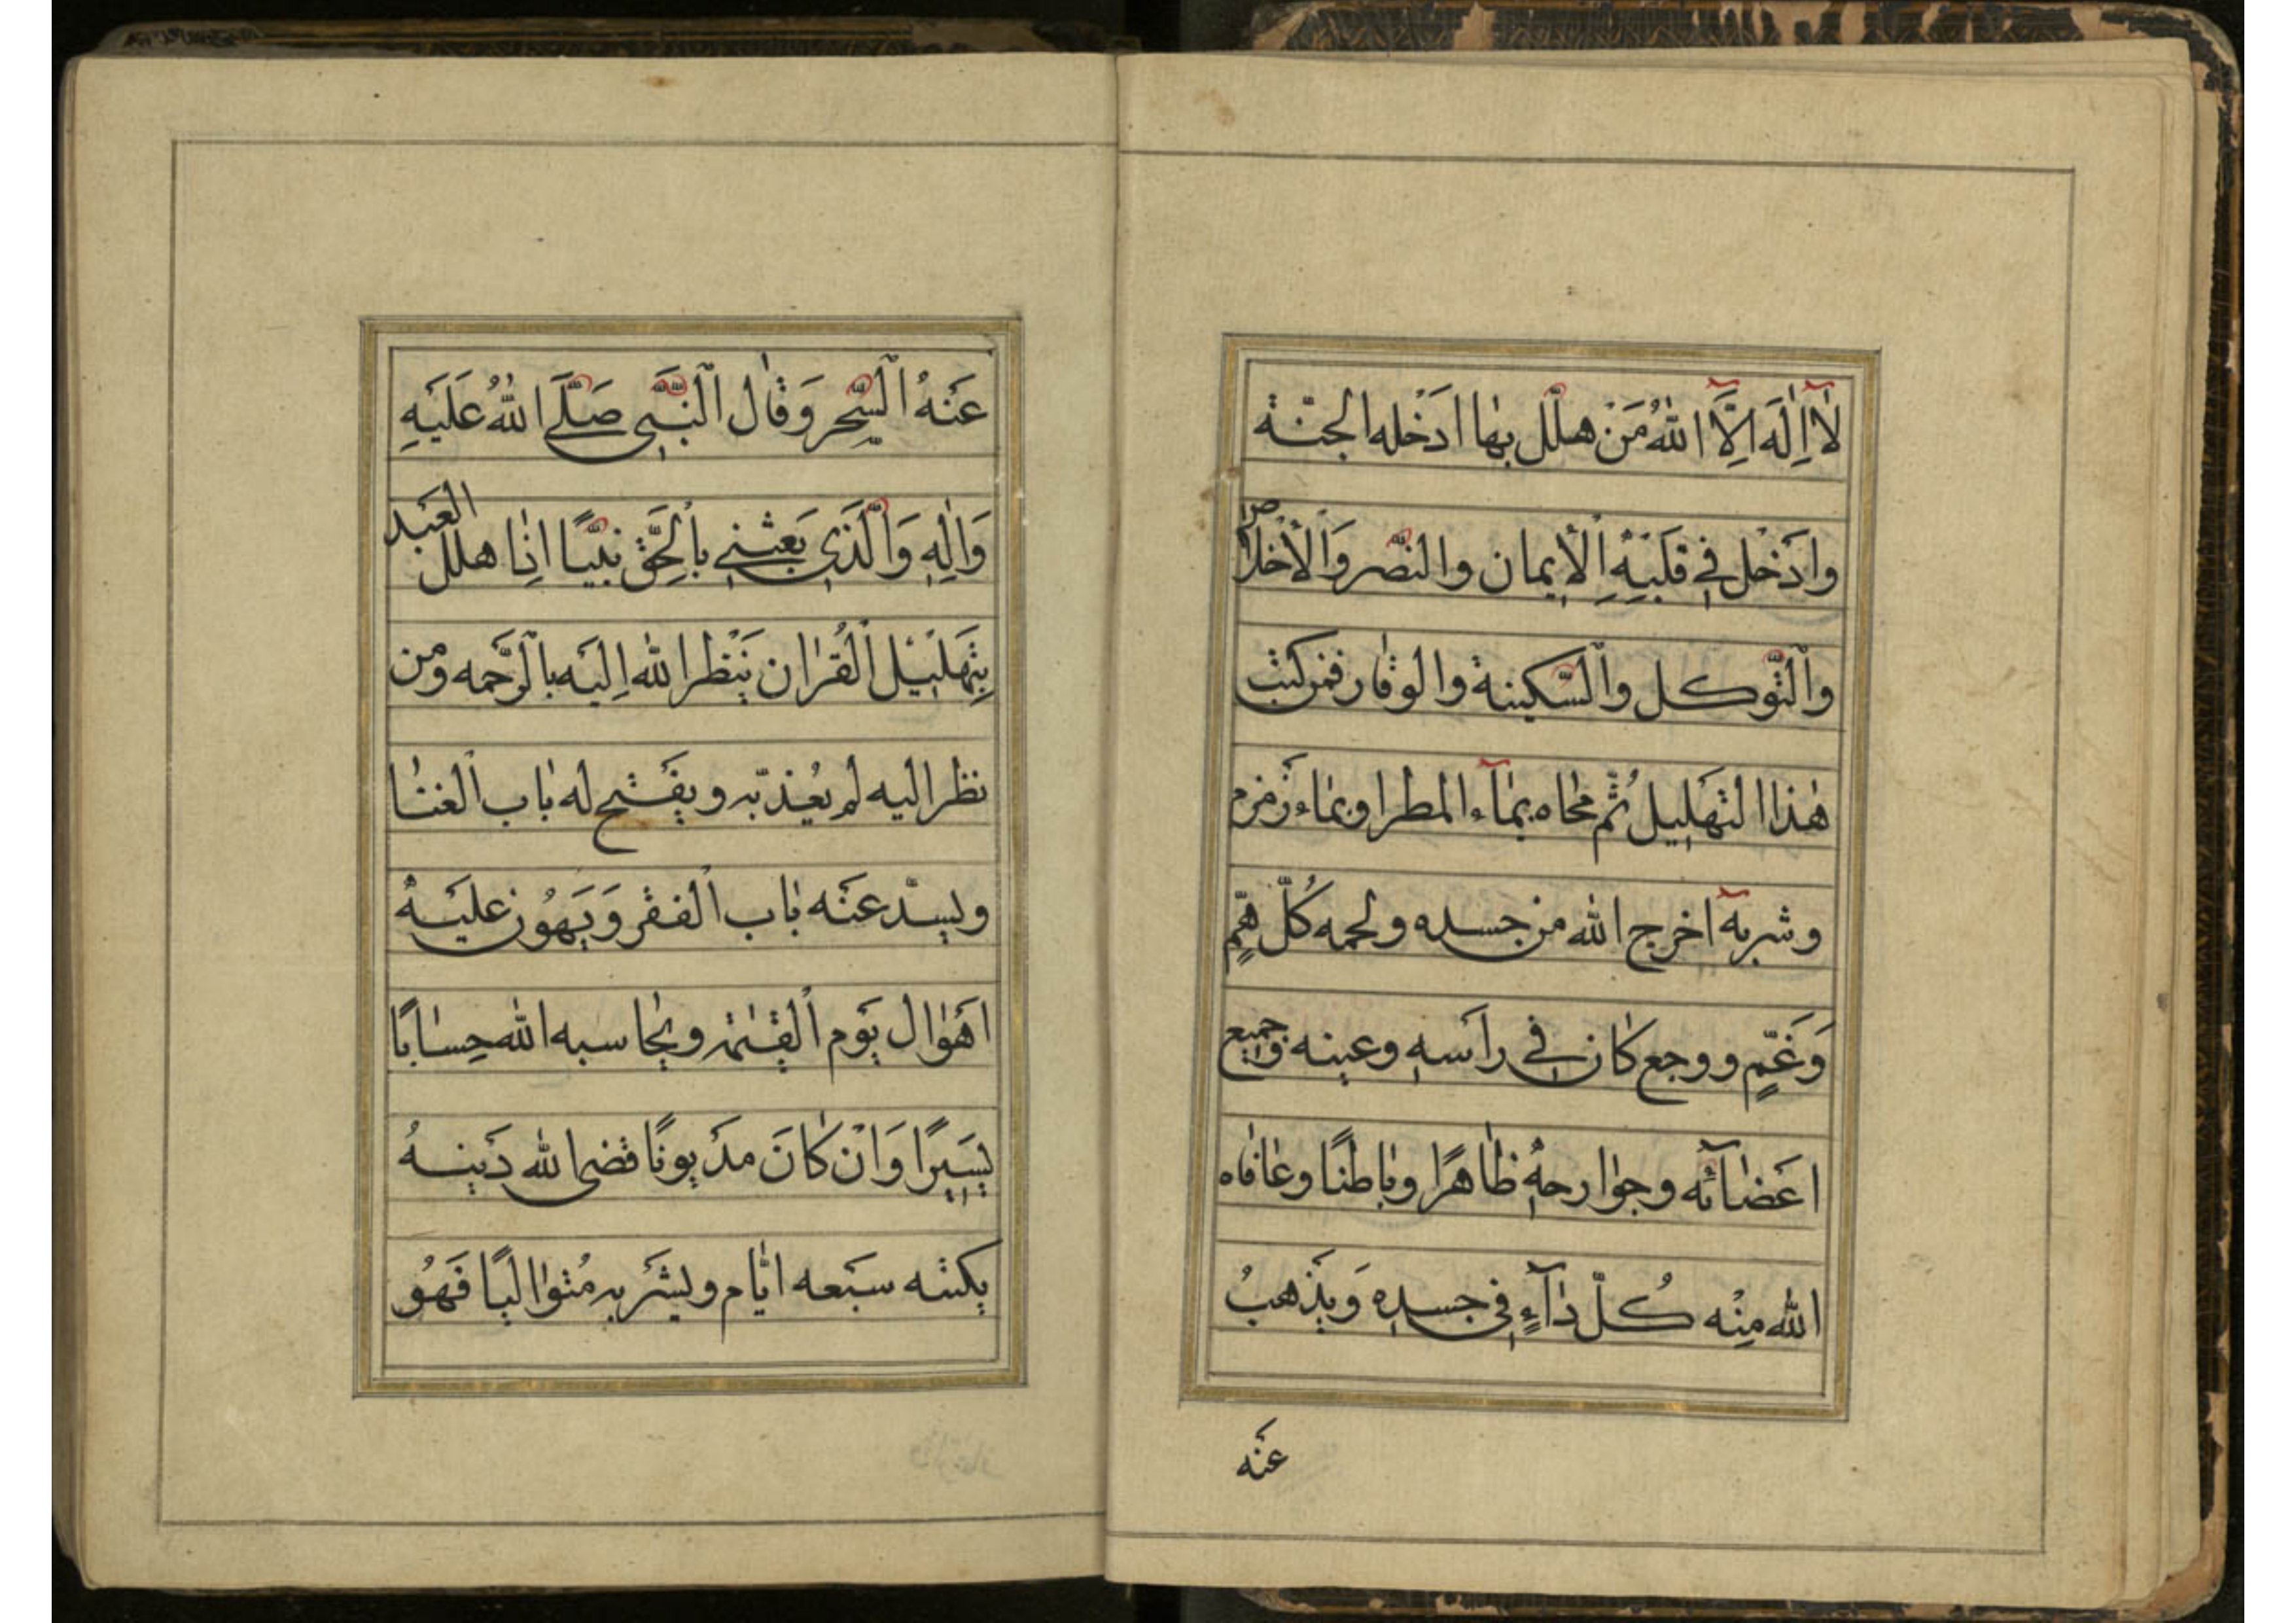 لَآ اِلٰهَ اِلَّا اللهُ مَنْ هلّل بها ادَخْله الجنّة
وادَخْل فِي قَلْبِهِ اَلْاِيمان والنصْر وَالْأخْلاص
والتّوكل والسّكينة والوقار فمن كتب
هٰذا التهَلِيل ثُمّ محاه بمآء المطر او بماء زَمزم
وشربه اخرج الله من جسده ولحمه كُلّ هَمٍّ
وَغَمٍّ ووجع كان في رأسهِ وعينه وجميع
اعَضآئه وجوارحهِ ظاهرًا وباطنًا وعافاه
الله مِنْه كُلّ دآءٍ فِي جسدِه وَيذَهبُ
عنَه
عَنهُ السِّحر وَقال النَّبِي صَلَّى اللهُ عَلَيهِ
وَالِهِ وَالَّذِي بَعَثنِي بِالحَقِّ نبيًّا اذِا هلل العبَد
بِتهَلِيْل القُرْان يَنْظر الله اِليَه بالرَّحمه ومَن
نظر اليه لم يُعذبّه ويفتَح له باب الغنا
ويسدّ عنَه باب الفقر وَيهَوُن عليَهُ
اهَوال يَوم القِيٰمة ويحاسبه الله حِسابًا
يَسِيرًا وَانْ كانَ مدَيونًا قضى الله دَينهُ
يكتبه سبَعه ايّام ويشرَبه مُتواليًا فَهُو